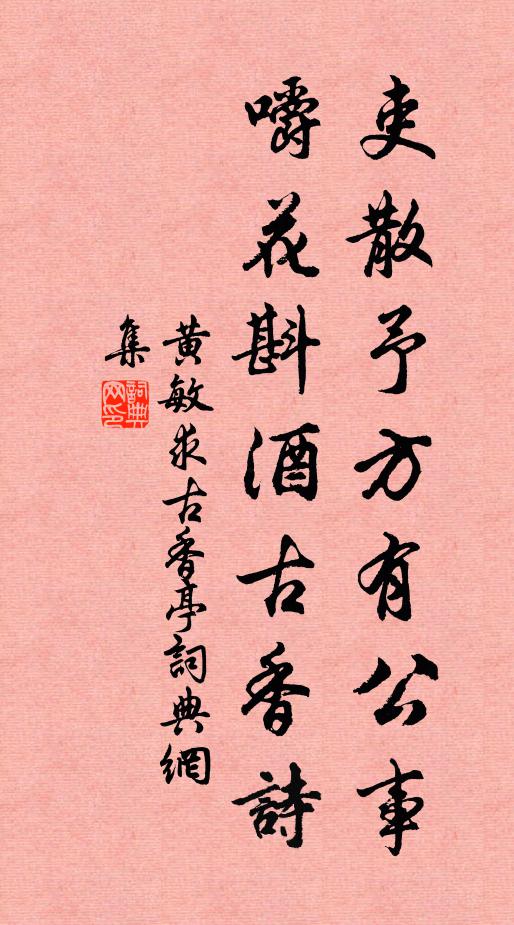 吏散予方有公事
嚼花斟酒古香詩
黃敏求古香亭詞典網
集
詞典網印